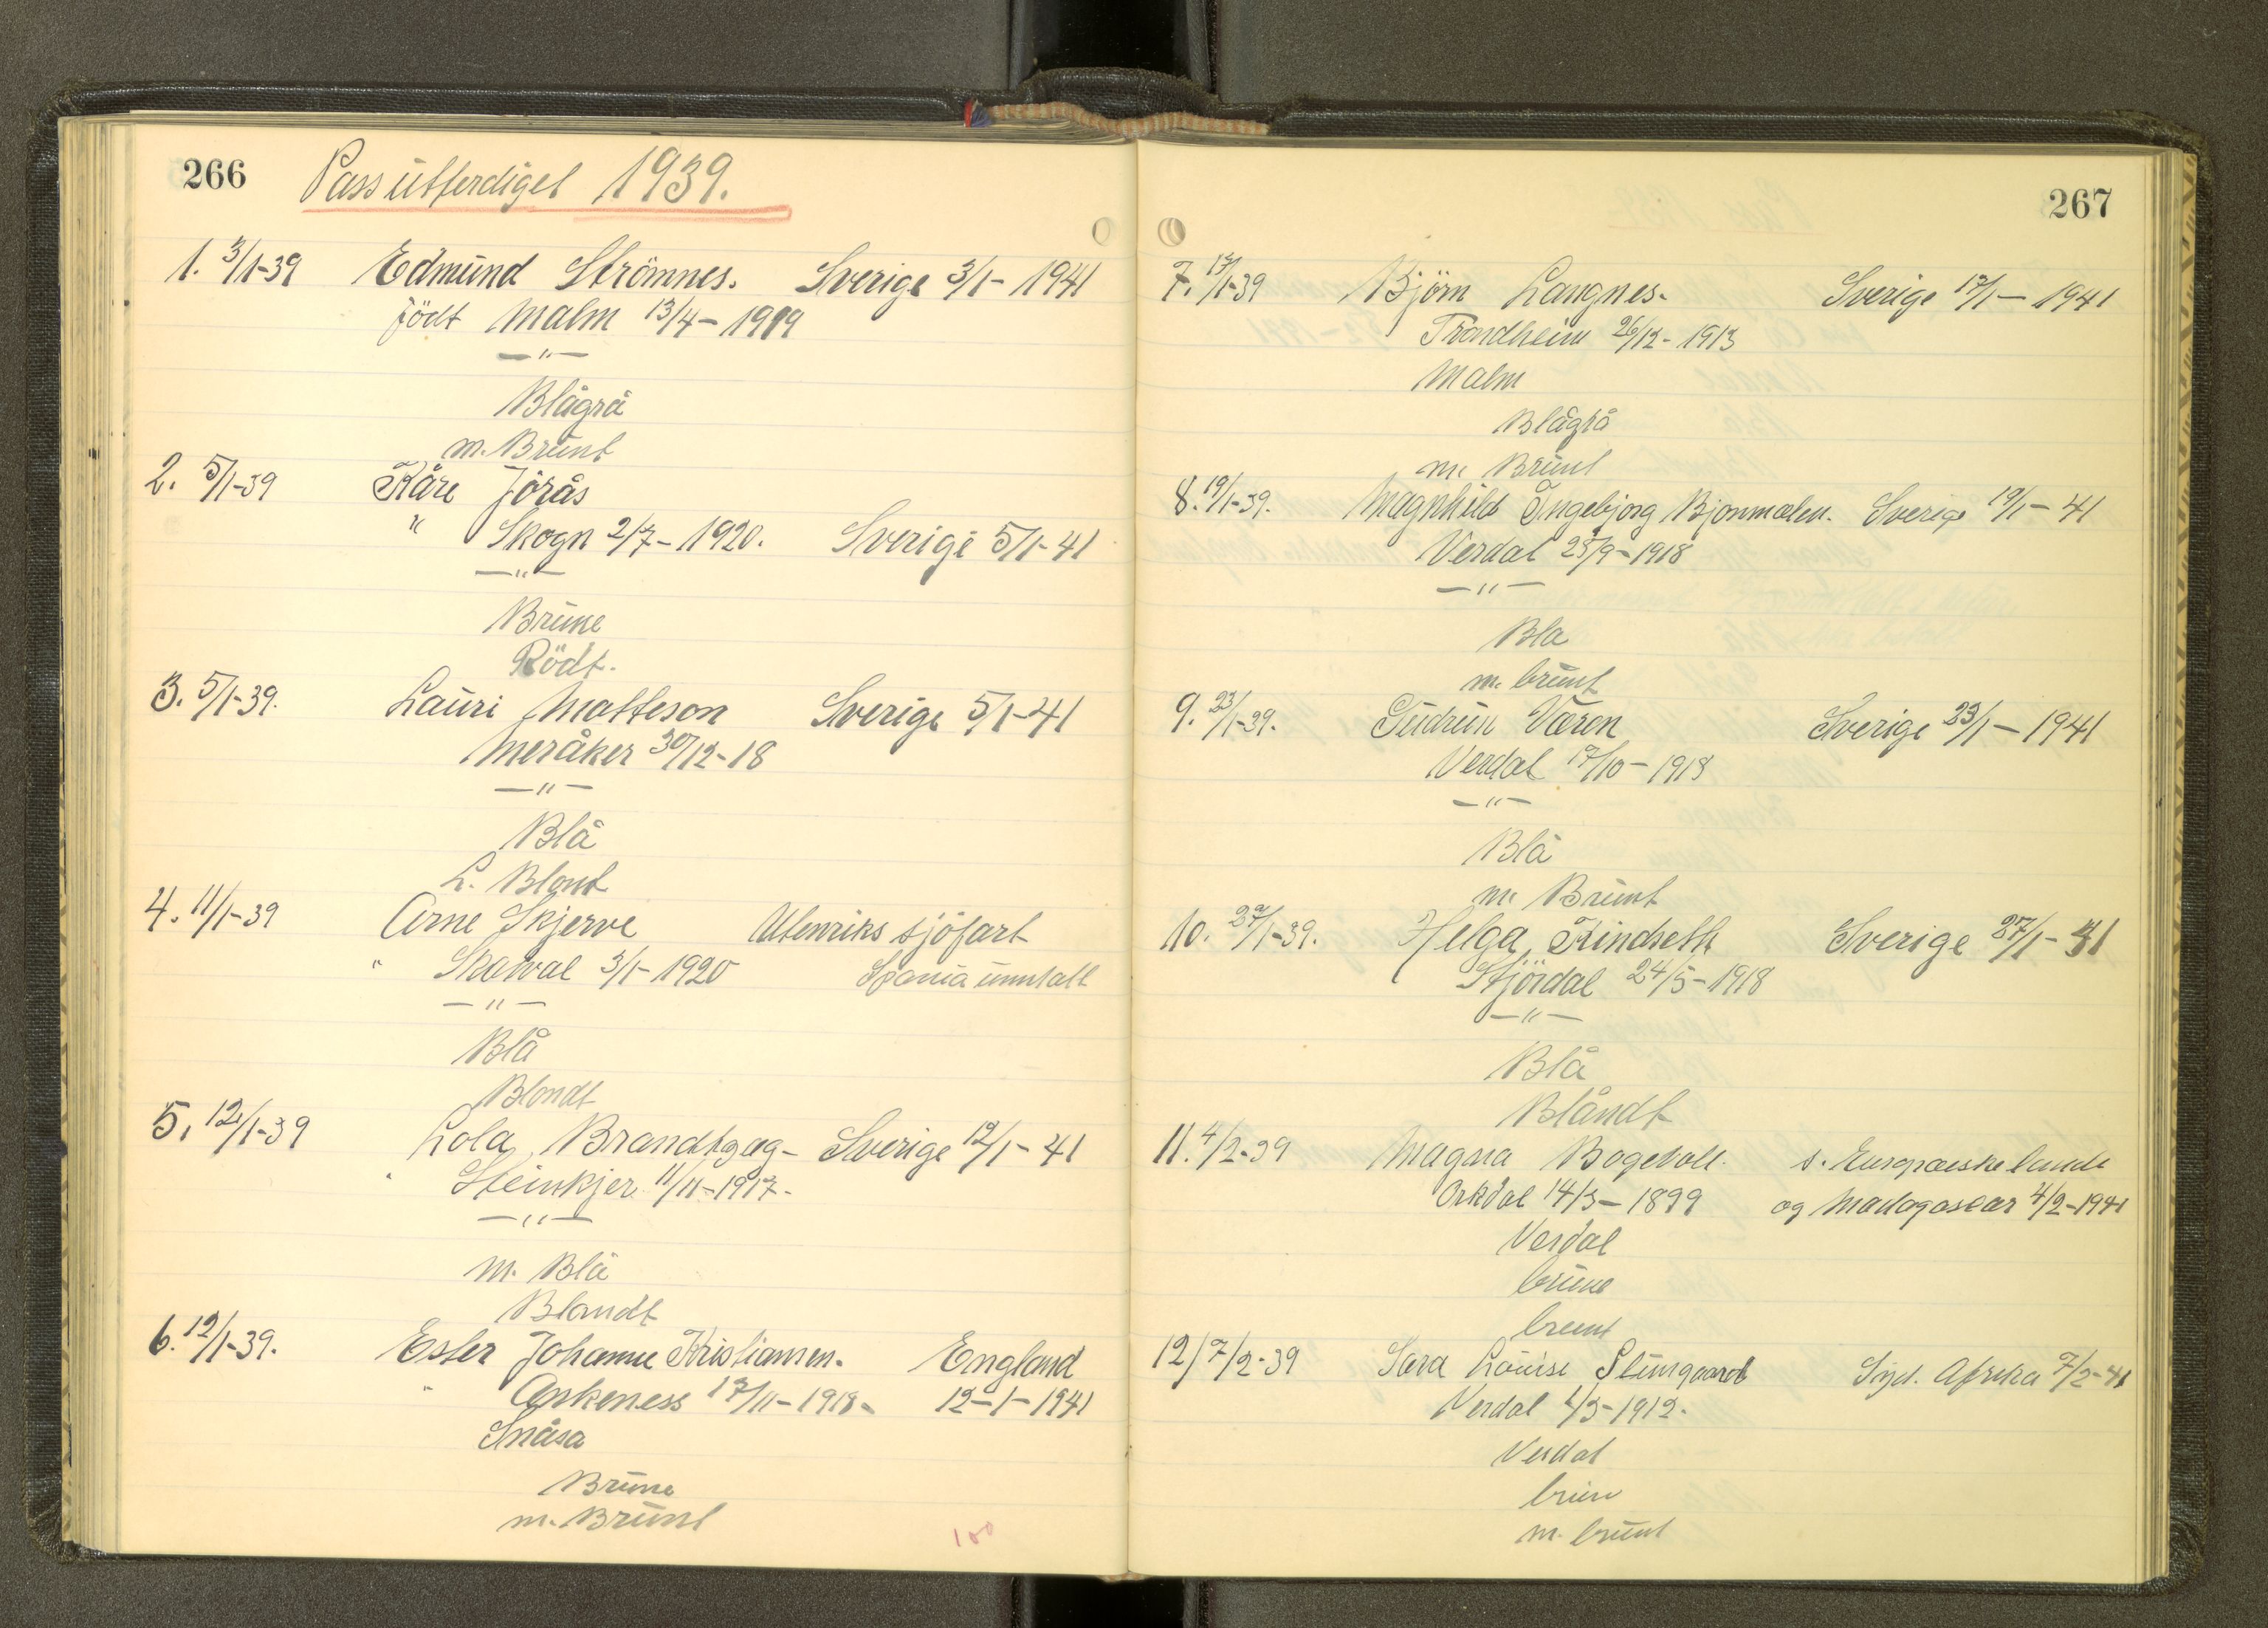 266 Pass utferdiget 1939.
1. 3/1-39 Edmund Strömnes. Sverige 3/1- 1941
födt Malm 13/4- 1919
—"—
Blågrå
m. Brunt
2. 5/1-39 Kåre Jörås
" Skogn 2/7- 1920. Sverige 5/1- 41
—"—
Brune
Rödt.
3. 5/1-39. Lauri Matteson Sverige 5/1-41
Meråker 30/12-18
—"—
Blå
L. Blont
4. 11/1-39 Arne Skjerve Utenriks sjöfart
" 3/1- 1920 Spania unntatt
—"—
Blå
Blondt
5. 12/1-39 Lola Brandtzæg- Sverige 12/1- 41
" Steinkjer 11/11-1917-
—"—
m. Blå
Blondt
6. 12/1-39. Ester Johanne Kristiansen. England
" Ankeness 17/11-1918- 12-1-1941
Snåsa
Brune
m. Brunt
100
267
7. 17/1-39 Björn Langnes. Sverige 17/1- 1941
Trondheim 26/12- 1913
Malm
Blågrå
m. Brunt
8. 19/1-39. Magnhild Ingebjorg Bjonmælen. Sverige 19/1- 41
Verdal 25/9-1918
—"—
Bla
m. brunt
9. 23/1-39. Gudrun Væren Sverige 23/1- 1941
Verdal 17/10-1918
—"—
Blå
m. Brunt
10. 27/1-39. Helga Kindseth Sverige 27/1- 41
Stjördal 24/5-1918
—"—
Blå
Blåndt
11. 4/2-39 Magna Bogevoll. s. Europæiske lande
Orkdal 14/3-1899 og Madagascar 4/2-1941
Verdal
brune
brunt
12/ 7/2-39 Sara Louise Stungaard Syd. Afrika 7/2-41
Verdal 1/3-1912.
Verdal
brun
m. brunt